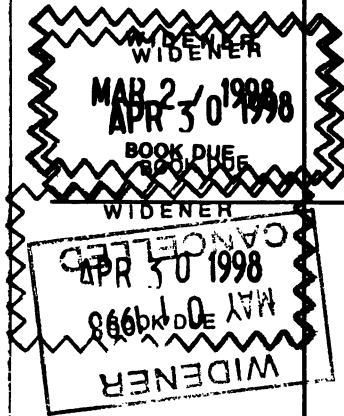 WIDENER
WIDENER
MAR 2 1998
APR 30 1998
BOOK DUE
BOOK DUE
WIDENER
CANCELLED
APR 30 1998
MAY 10
BOOK DUE
WIDENER